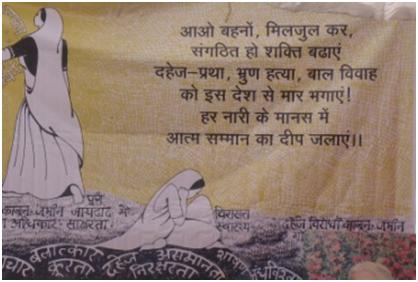 आओ बहनों, मिलजुल कर,
संगठित हो शक्ति बढाएं
दहेज-प्रथा, भ्रुण हत्या, बाल विवाह
को इस देश से मार भगाएं!
हर नारी के मानस में
आत्म सम्मान का दीप जलाएं।।
कानून जमीन जायदाद में
अधिकार साक्षरता
विरासत
स्वास्थ्य
दहेज विरोधी कानून जमीन
बलात्कार दहेज असमानता शोषण
क्रूरता निरक्षरता